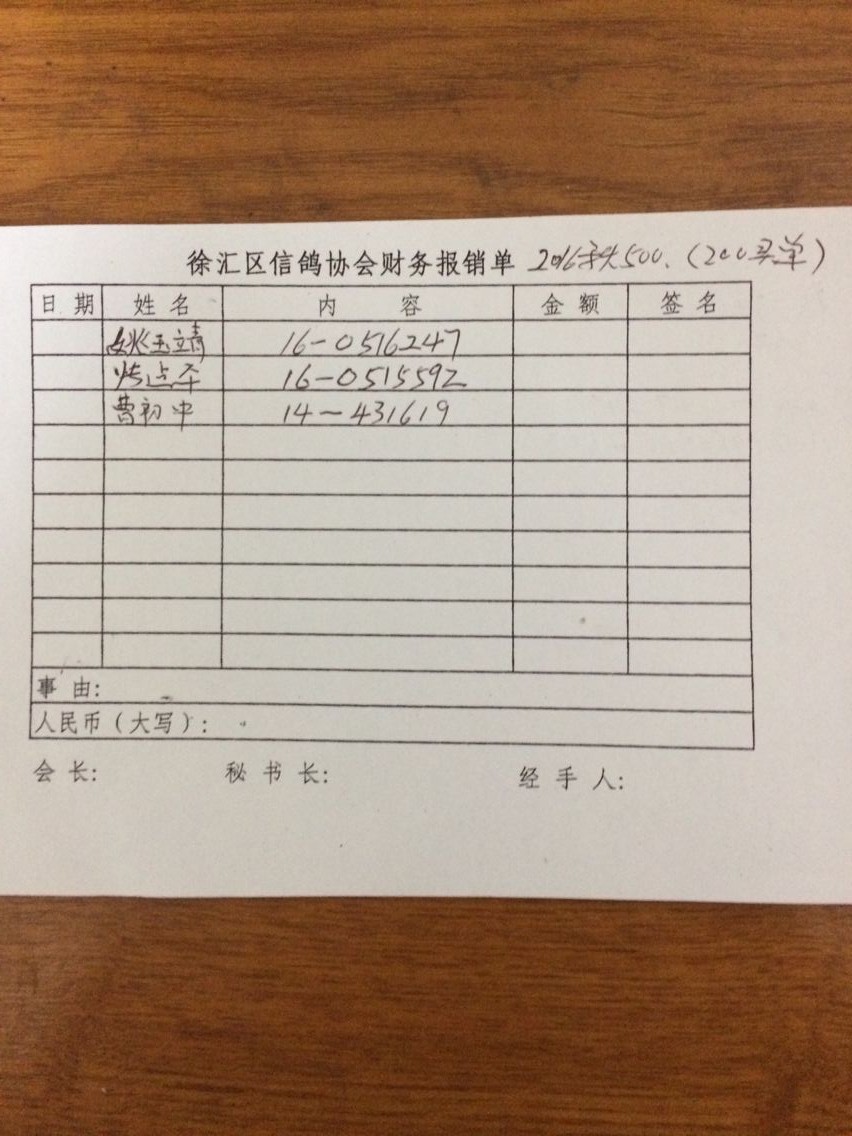 徐汇区信鸽协会财务报销单 2016秋500.(200买单)
日 期 姓 名 内 容 金 额 签 名
姚玉靖 16-0516247
16-0515592
曹初中 14-431619
事 由:
人民币(大写):
会 长: 秘 书 长: 经 手 人: